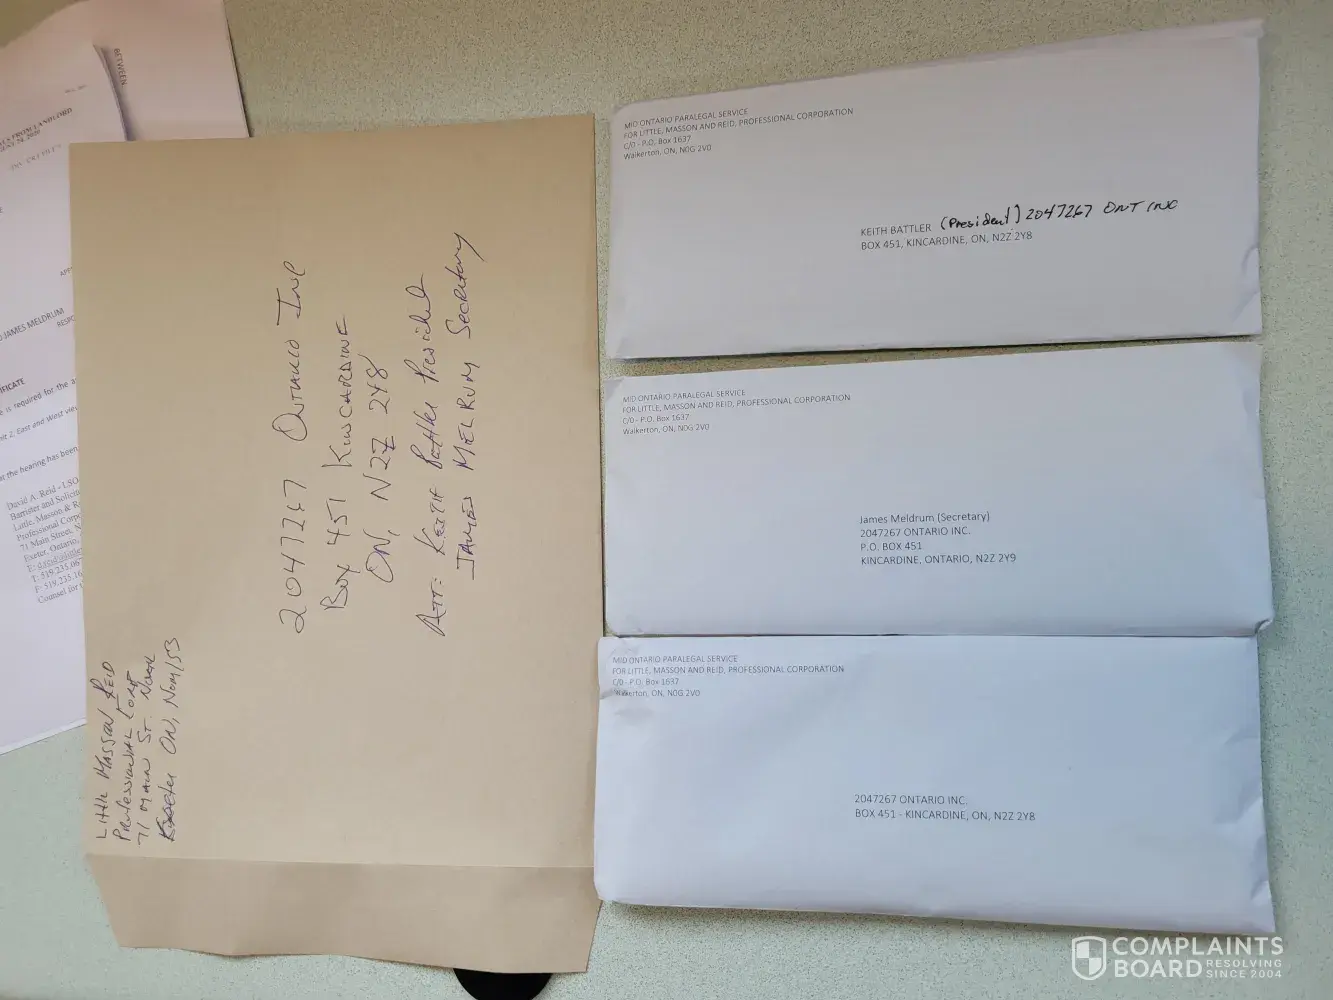 BETWEEN
FROM LANDLORD
JAMES MELDRUM
RESPO
e is required for the a
nit 2, East end West view
at the hearing has been
David A. Reid - LSO
Barrister and Solicito
Little, Masson & R
Professional Corp
71 Main Street, N
Exeter, Ontario,
T: 519.235.06
F: 519.235.16
Counsel for
2047267 ONTARIO Inc
Box 451 KINCARDINE
ON, N2Z 2Y8
Att: KEITH Battler President
JAMES MELRUM Secretary
Little MASSON REID
PROFESSIONAL CORP
71 MAIN ST. North
Exeter ON, N0M 1S3
MID ONTARIO PARALEGAL SERVICE
FOR LITTLE, MASSON AND REID, PROFESSIONAL CORPORATION
C/0 - P.O. Box 1637
Walkerton, ON, N0G 2V0
KEITH BATTLER (President) 2047267 ONT INC
BOX 451, KINCARDINE, ON, N2Z 2Y8
MID ONTARIO PARALEGAL SERVICE
FOR LITTLE, MASSON AND REID, PROFESSIONAL CORPORATION
C/0 - P.O. Box 1637
Walkerton, ON, N0G 2V0
James Meldrum (Secretary)
2047267 ONTARIO INC.
P.O. BOX 451
KINCARDINE, ONTARIO, N2Z 2Y9
MID ONTARIO PARALEGAL SERVICE
FOR LITTLE, MASSON AND REID, PROFESSIONAL CORPORATION
C/0 - P.O. Box 1637
Walkerton, ON, N0G 2V0
2047267 ONTARIO INC.
BOX 451 - KINCARDINE, ON, N2Z 2Y8
COMPLAINTS
BOARD RESOLVING
SINCE 2004